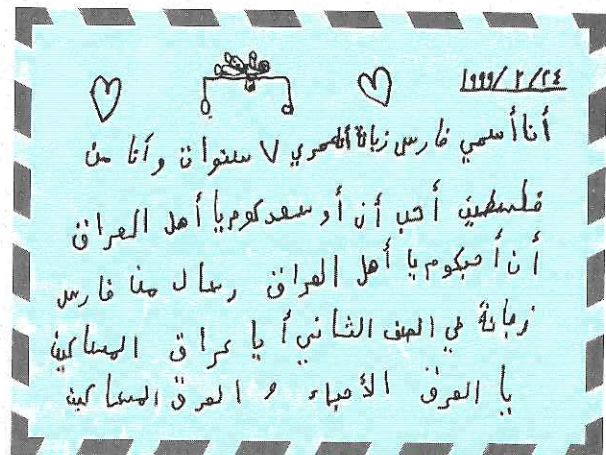 ١٩٩٩/٢/٢٤
أنا أسمي فارس زبانة أنا عمري ٧ سنوات وأنا من
فلسطين أحب أن أوسعدكوم يا أهل العراق
أن أحبكوم يا أهل العراق رسال من فارس
زبانة في الصف الثاني أ يا عراق المساكين
يا العرق الأحباء و العرق المساكين